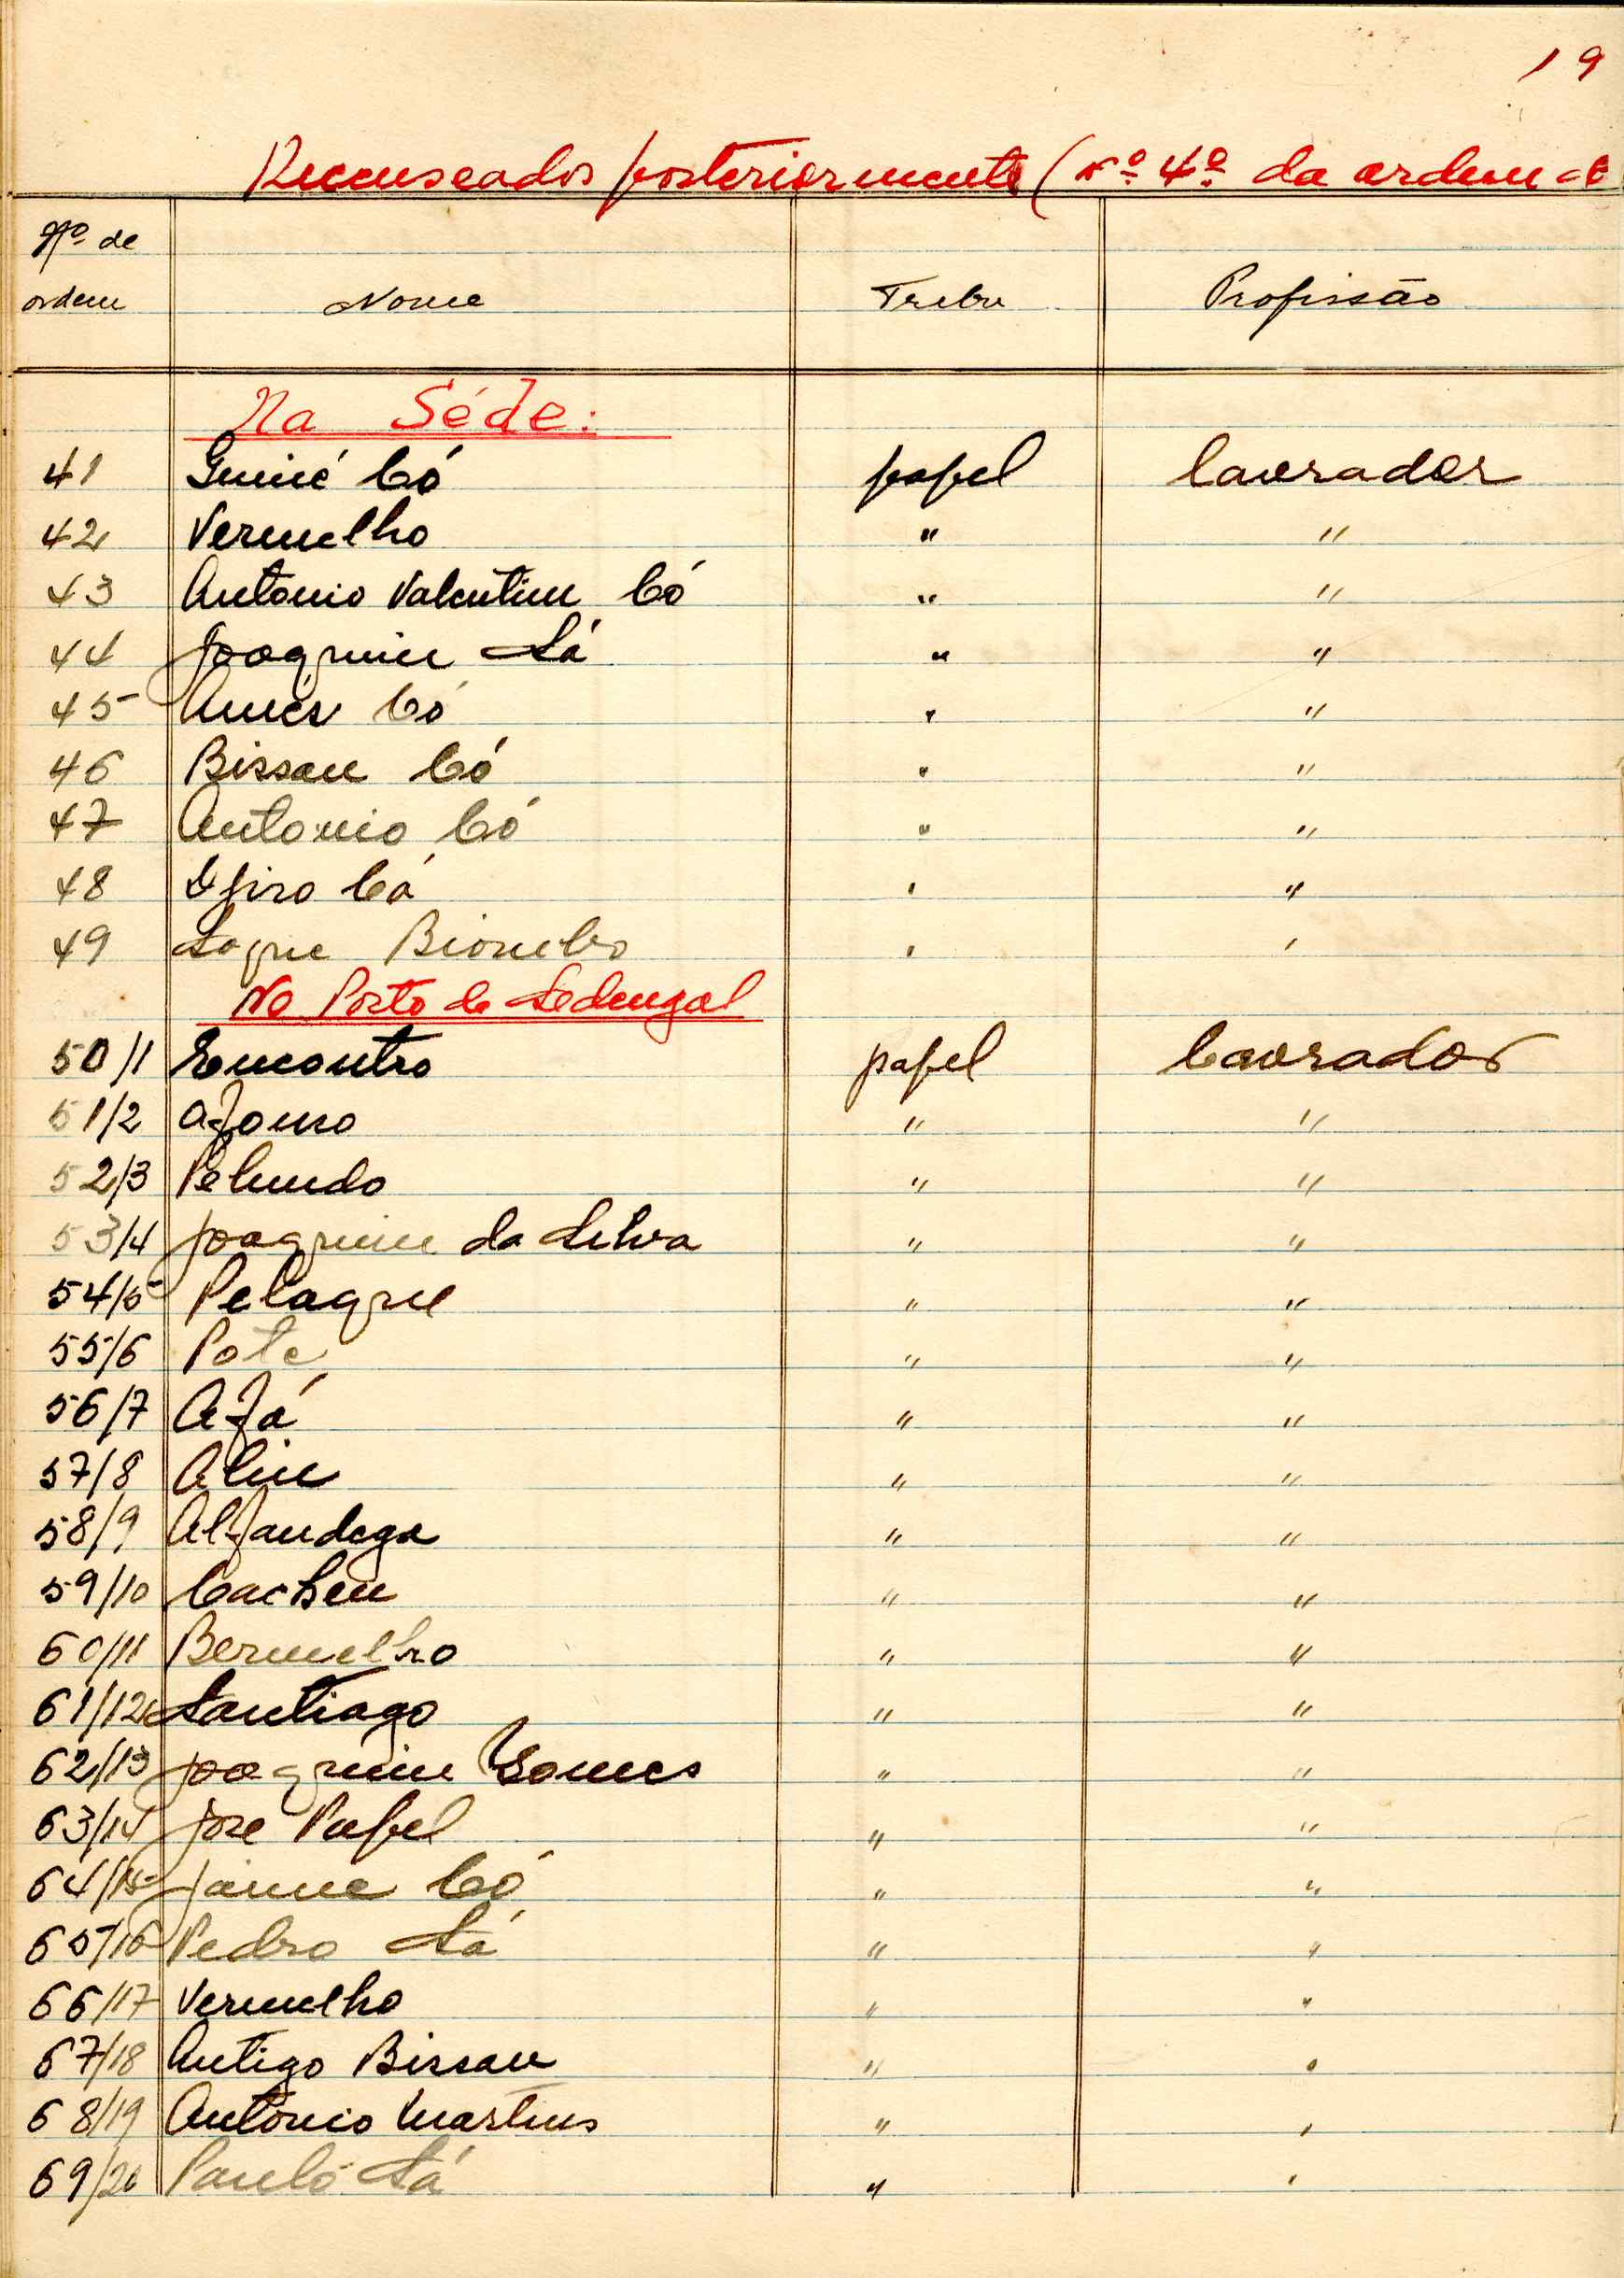 19
Recenseados posteriormente (nº 4º da ordem
Nº de
ordem Nome Tribu Profissão
Na Séde:
41 Có papel lavrador
42 Vermelho " "
43 Antonio Valentim Có " "
44 Joaquim Sá " "
45 Có " "
46 Bissau Có " "
47 Antonio Có " "
48 " "
49 Biombo " "
No Porto de Sedengal
50/1 Encontro papel lavrador
51/2 Afonso " "
52/3 Pelundo " "
53/4 Joaquim da Silva " "
54/5 Pelagre " "
55/6 Pote " "
56/7 Afá " "
57/8 " "
58/9 Alfandega " "
59/10 Cacheu " "
60/11 Bermelho " "
61/12 Santiago " "
62/13 Joaquim Gomes " "
63/14 José Papel " "
64/15 Jaime Có " "
65/16 Pedro Sá " "
66/17 Vermelho " "
67/18 Antigo Bissau " "
68/19 Antonio Martins " "
69/20 Paulo Sá " "